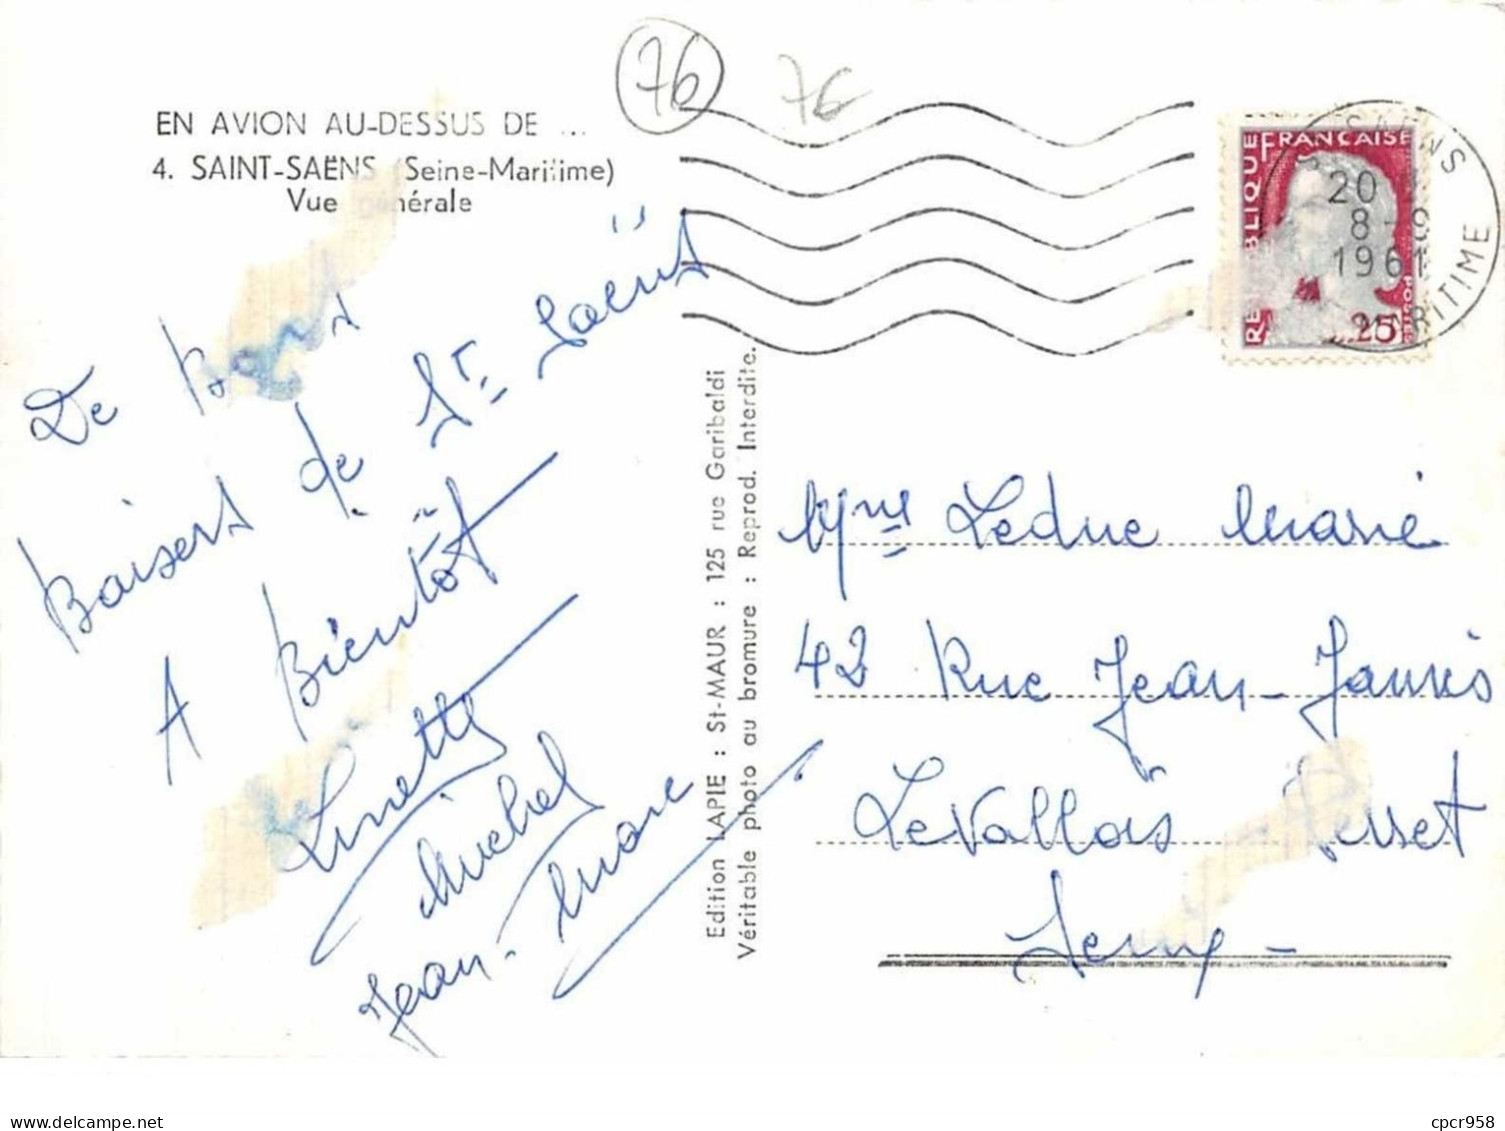 76
76
EN AVION AU-DESSUS DE ...
4. SAINT-SAËNS (Seine-Maritime)
Vue générale
De Bons
Baisers de St. Saëns
A Bientôt
Linette
Michel
Jean-Marc
Edition LAPIE : St-MAUR : 125 rue Garibaldi
Véritable photo au bromure : Reprod. Interdite.
RÉPUBLIQUE FRANÇAISE
SAENS
20
8-8
1961
MARITIME
25
Mme Leduc Marie
42 Rue Jean-Jaurès
Levallois Perret
Seine-
delcampe.net
cpcr958